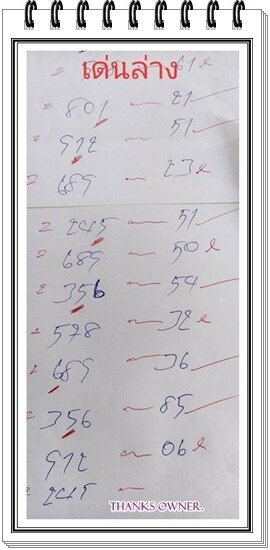 61
เด่นล่าง
801 — 21
912 — 51
689 — 23
245 — 51
689 — 50
356 — 54
578 — 32
689 — 36
356 — 85
912 — 06
245 —
THANKS OWNER.